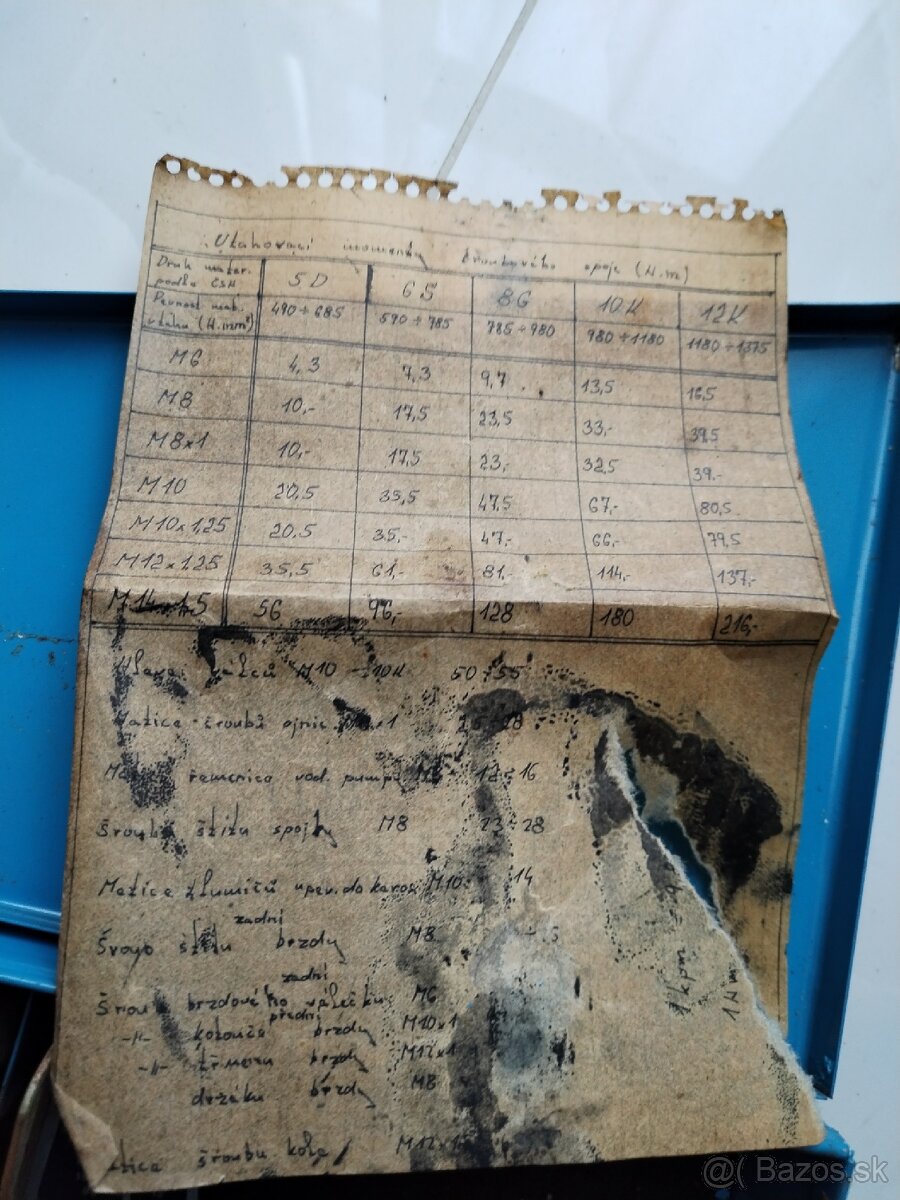 Utahovací momenty šroubového spoje (N.m)
Druh mater. podle ČSN 5D 6S 8G 10K 12K
Pevnost mat. v tahu (N.mm²) 490÷685 590÷785 785÷980 980÷1180 1180÷1375
M6 4,3 7,3 9,7 13,5 16,5
M8 10,- 17,5 23,5 33,- 39,5
M8x1 10,- 17,5 23,- 32,5 39,-
M10 20,5 35,5 47,5 67,- 80,5
M10x1,25 20,5 35,- 47,- 66,- 79,5
M12x1,25 35,5 61,- 81,- 114,- 137,-
M14x1,5 56 96,- 128 180 216,-
Hlava válců M10 - 10K 50÷55
Matice šroubů ojnic
řemenice vod. pumpy 16
Šroubů štítu spojky M8 23÷28
Matice tlumičů upev. do karos. M10 14
zadní
štítu brzdy M8
zadní
Šroub brzdového válečku M6
přední
-"- kotouče brzdy M10x1
-"- třmenu brzdy
držáku brzdy M8
šroubu kola
1 kpm
1 Nm
@( Bazos.sk